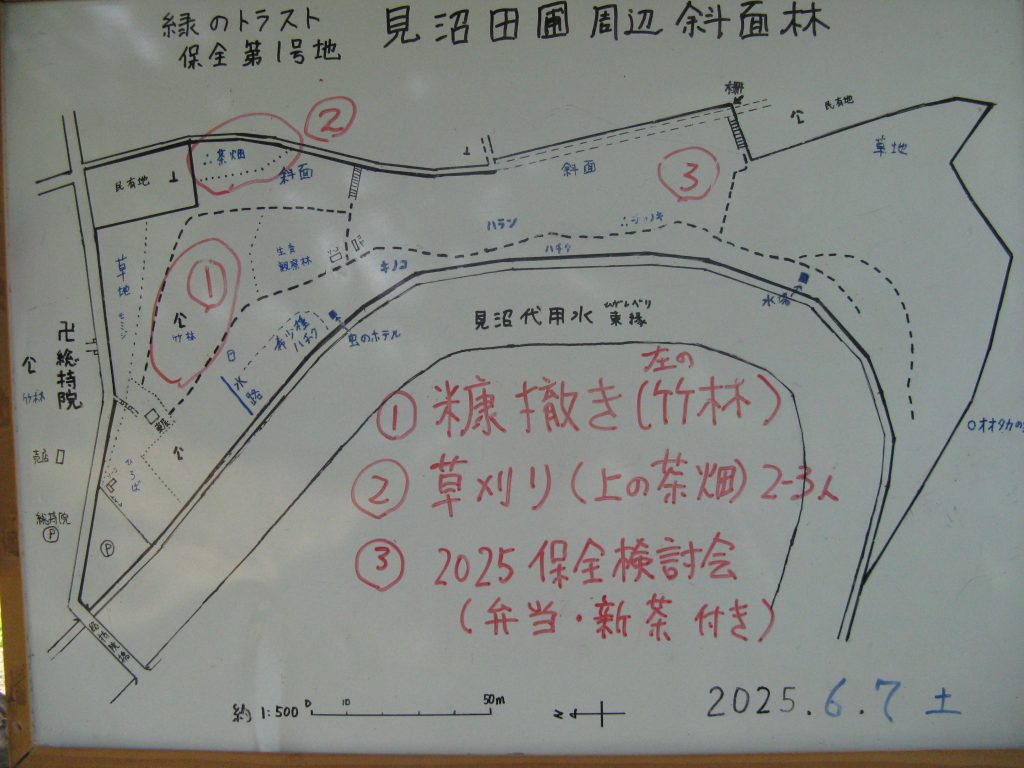 緑のトラスト
保全第1号地
見沼田圃周辺斜面林
②
柵
民有地
草地
茶畑
斜面
斜面
③
民有地
ハラン
ハチク
草地
生育
観察林
キノコ
①
竹林
水場
見沼代用水 東縁
希少種
ハチク
虫のホテル
水路
卍総持院
竹林
売店
ひろば
総持院
Ⓟ
Ⓟ
オオタカの
左の
① 糠撒き(竹林)
② 草刈り(上の茶畑) 2-3人
③ 2025 保全検討会
(弁当・新茶 付き)
約 1:500
0 10 50m
N
2025.6.7 土